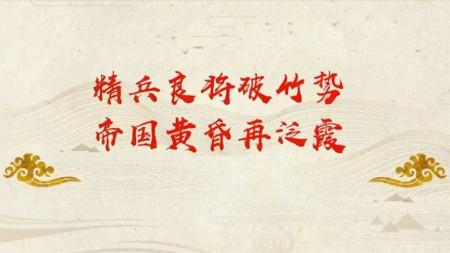 精兵良将破竹势
帝国黄昏再泛霞